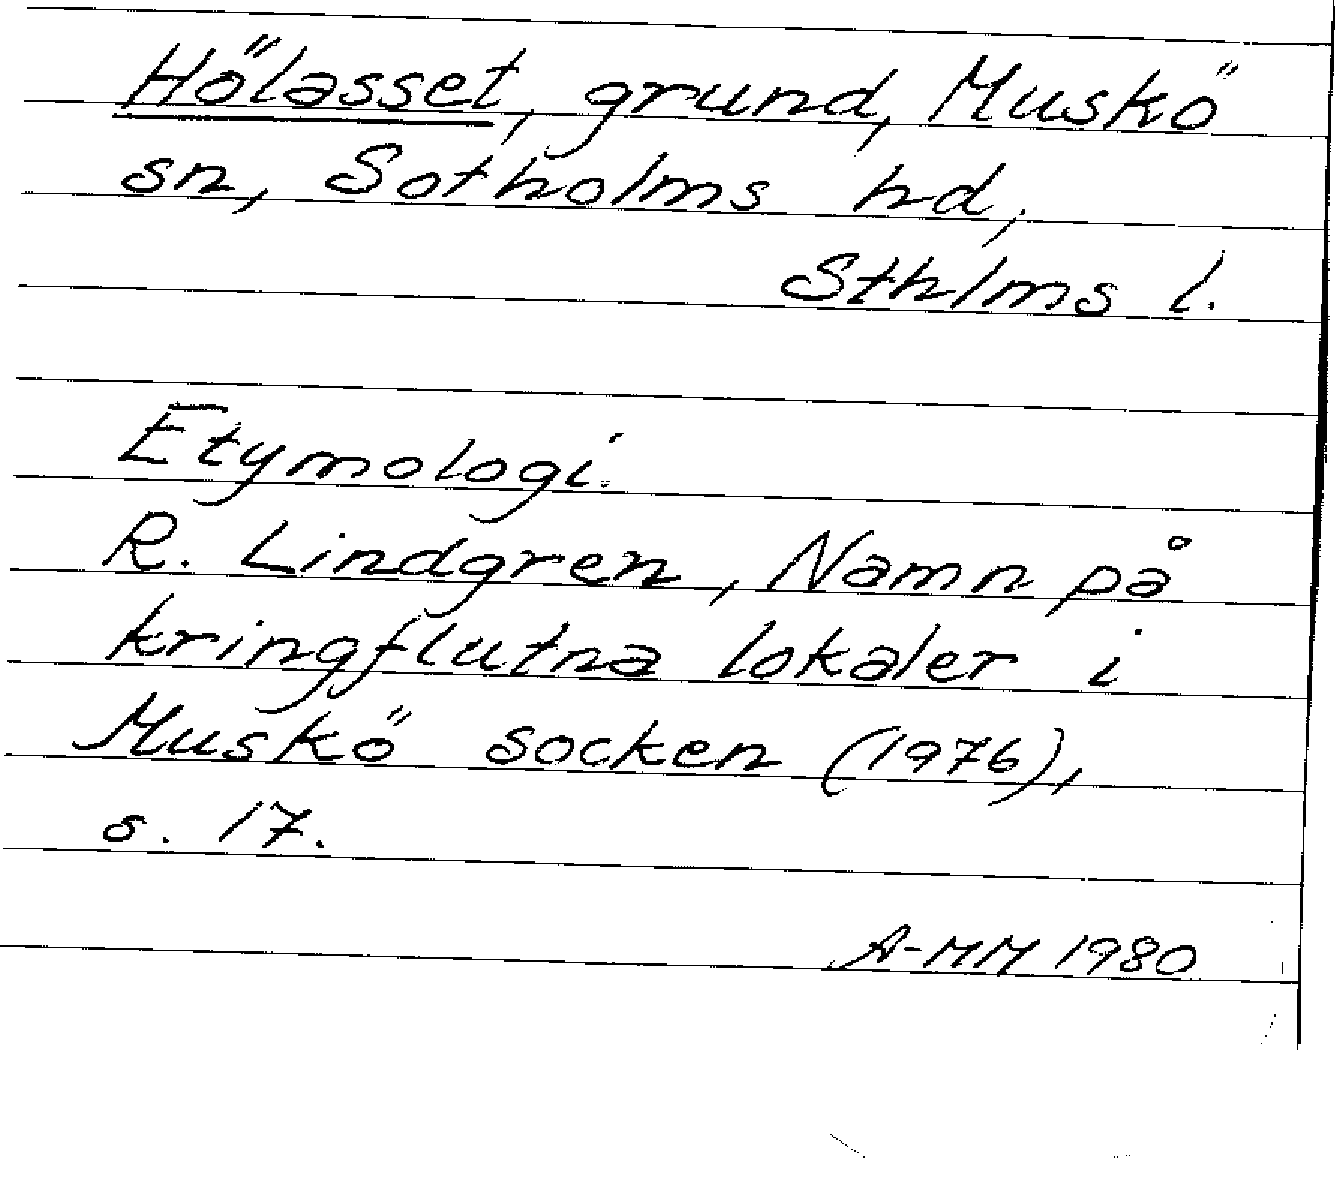 Hölasset, grund, Muskö
sn, Sotholms hd,
Sthlms l.
Etymologi.
R. Lindgren, Namn på
kringflutna lokaler i
Muskö socken (1976),
s. 17.
A-MM 1980